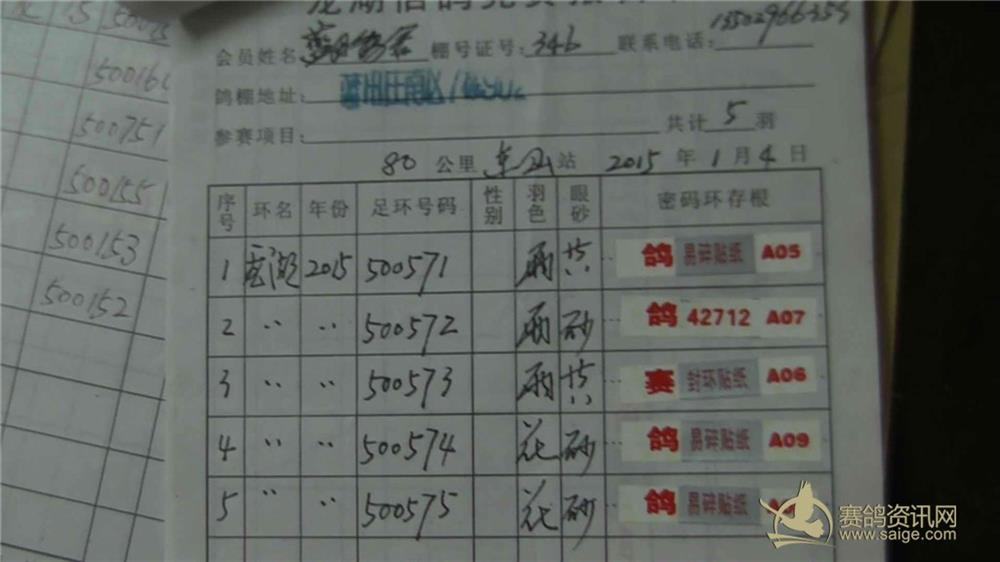 15
500161
500751
500155
500153
500152
会员姓名 棚号证号: 346 联系电话: 13502966353
鸽棚地址:
参赛项目: 共计 5 羽
80 公里 东山 站 2015 年 1 月 4 日
序号 环名 年份 足环号码 性别 羽色 眼砂 密码环存根
1 龙湖 2015 500571 雨 黄 鸽 易碎贴纸 A05
2 〃 〃 500572 雨 砂 鸽 42712 A07
3 〃 〃 500573 雨 黄 赛 封环贴纸 A06
4 〃 〃 500574 花 砂 鸽 易碎贴纸 A09
5 〃 〃 500575 花 砂 鸽 易碎贴纸
赛鸽资讯网
www.saige.com